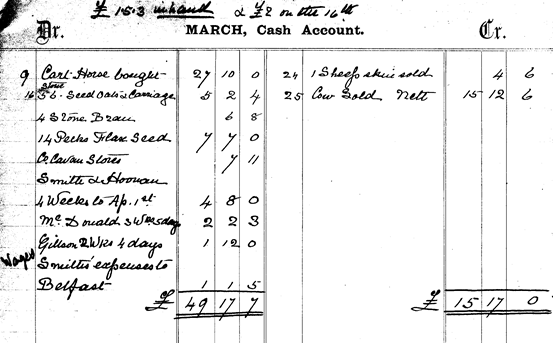 £ 15.3 in hand & £2 on the 16th
Dr. MARCH, Cash Account. Cr.
9 Cart Horse bought 27 10 0 24 1 Sheep skin sold 4 6
Stone
16 56 Seed Oats & Carriage 5 2 4 25 Cow Sold Nett 15 12 6
4 Stone Bran 6 8
14 Pecks Flax Seed 7 7 0
Cavan Stores 7 11
Smith & Hoonan
4 Weeks to Ap. 1st 4 8 0
Mc Donald 3 Wks days 2 2 3
Gillson 2 Wks 4 days 1 12 0
Wages Smiths' expenses to
Belfast 1 1 5
£ 49 17 7 £ 15 17 0